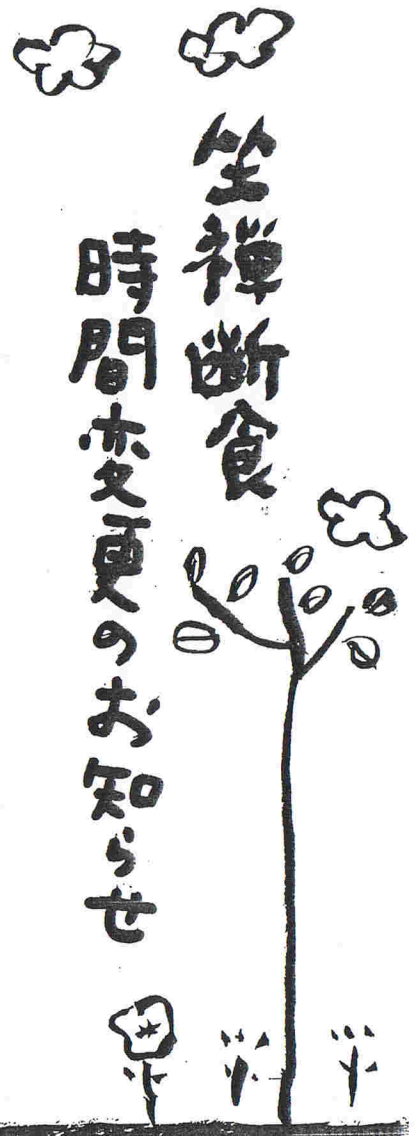 坐禅断食
時間変更のお知らせ